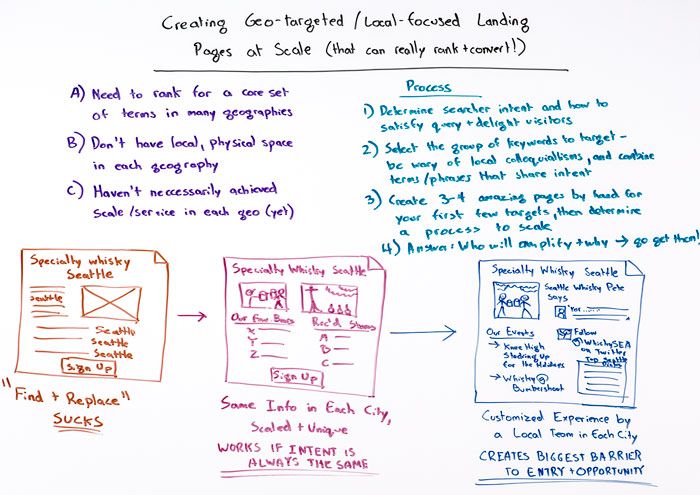 Creating Geo-targeted / Local-focused Landing
Pages at Scale (that can really rank+convert!)
A) Need to rank for a core set
of terms in many geographies
B) Don't have local, physical space
in each geography
C) Haven't neccessarily achieved
scale/service in each geo (yet)
Process
1) Determine searcher intent and how to
satisfy query + delight visitors
2) Select the group of keywords to target -
be wary of local colloquialisms, and combine
terms/phrases that share intent
3) Create 3-4 amazing pages by hand for
your first few targets, then determine
a process to scale
4) Answer: Who will amplify + why → go get them!
Specialty whisky
Seattle
seattle
Seattle
Seattle
Seattle
Sign Up
"Find + Replace"
SUCKS
Specialty Whisky Seattle
Our Fave Bars
X
Y
Z
Rec'd Stores
A
B
C
Sign Up
Same Info in Each City,
Scaled + Unique
WORKS IF INTENT IS
ALWAYS THE SAME
Specialty Whisky Seattle
Seattle Whisky Pete
Says
Our Events
→ Knee High
Stocking Up
for the Holidays
→ Whisky @
Bumbershoot
Follow
@WhiskySEA
on Twitter
Top Seattle
Customized Experience by
a Local Team in Each City
CREATES BIGGEST BARRIER
TO ENTRY + OPPORTUNITY